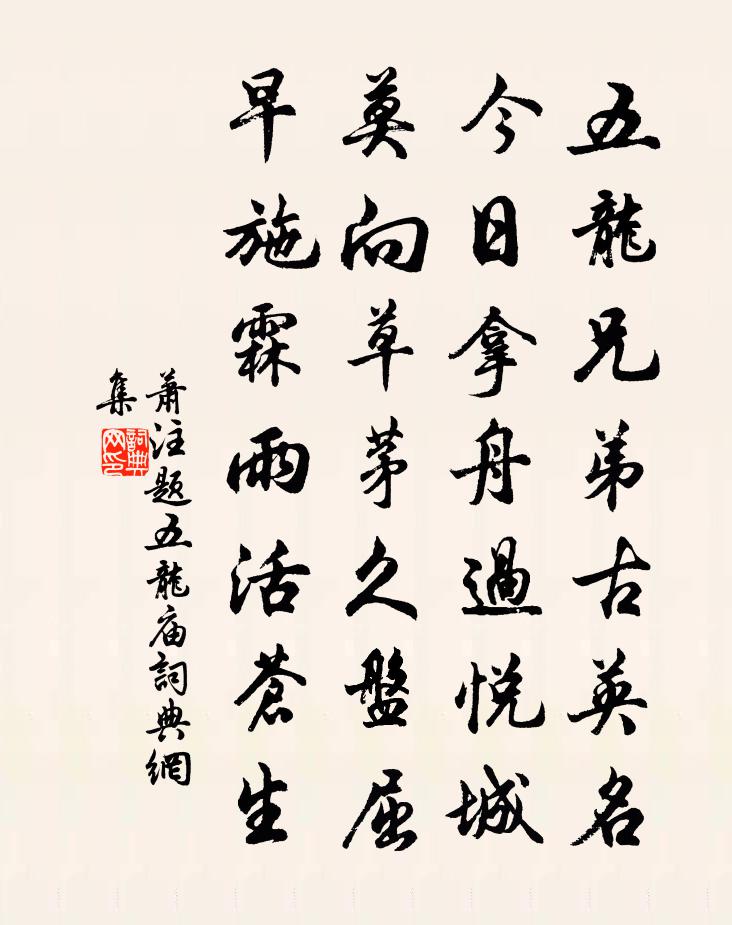 五龍兄弟古英名
今日拿舟過悦城
莫向草茅久盤屈
早施霖雨活蒼生
蕭注題五龍庙詞典網
集
詞典网印